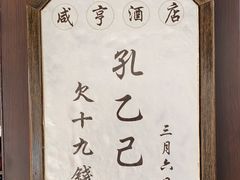 咸亨酒店
孔乙己
欠十九錢
三月六日